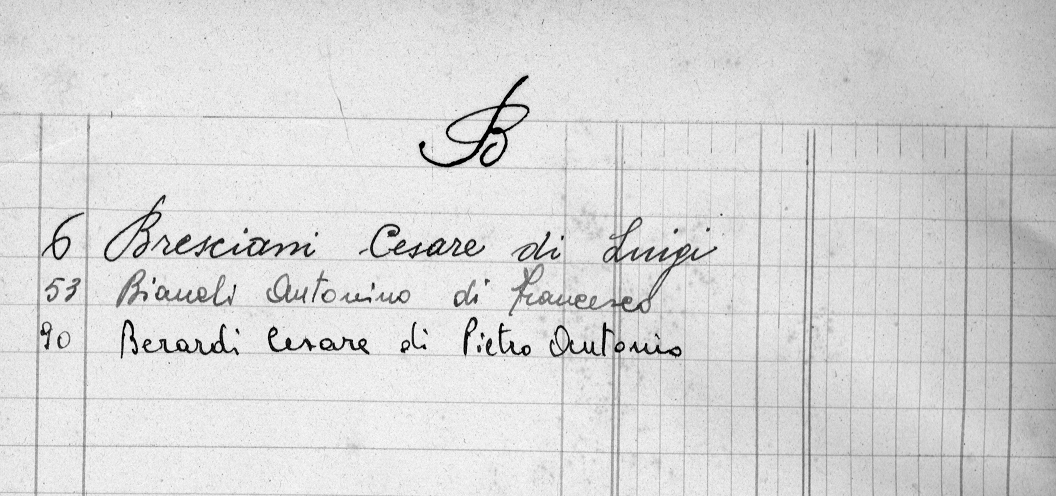 B
6 Bresciani Cesare di Luigi
53 Bianoli Antonino di Francesco
90 Berardi Cesare di Pietro Antonio